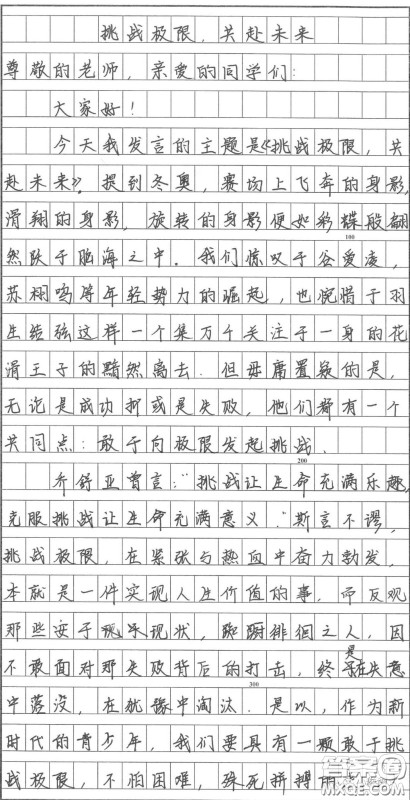 挑战极限，共赴未来
尊敬的老师，亲爱的同学们：
大家好！
今天我发言的主题是《挑战极限，共
赴未来》。提到冬奥，赛场上飞奔的身影，
滑翔的身影，旋转的身影便如彩蝶般翩
然跃于脑海之中。我们惊叹于谷爱凌，
100
苏翊鸣等年轻势力的崛起，也惋惜于羽
生结弦这样一个集万千关注于一身的花
滑王子的黯然离去。但毋庸置疑的是，
无论是成功抑或是失败，他们都有一个
共同点：敢于向极限发起挑战。
200
乔舒亚曾言：“挑战让生命充满乐趣，
克服挑战让生命充满意义。”斯言不谬，
挑战极限，在紧张与热血中奋力勃发，
本就是一件实现人生价值的事。而反观
那些安于现状，踟蹰徘徊之人，因
不敢面对那失败背后的打击，终是在失意
中落没，在犹豫中淘汰。是以，作为新
300
时代的青少年，我们要具有一颗敢于挑
战极限，不怕困难，殊死拼搏
MXQE.COM